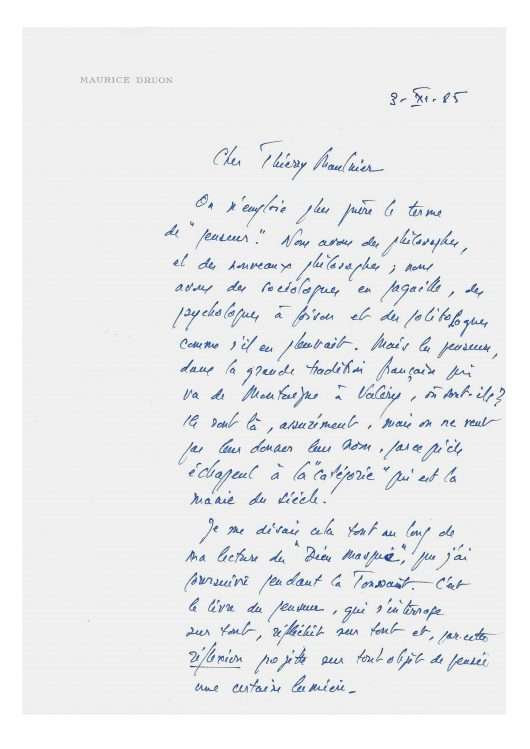 MAURICE DRUON
3-XI-85
Cher Thierry Maulnier
On n'emploie plus guère le terme
de "penseur". Nous avons des philosophes,
et des nouveaux philosophes ; nous
avons des sociologues en pagaille, des
psychologues à foison et des politologues
comme s'il en pleuvait. Mais les penseurs,
dans la grande tradition française qui
va de Montaigne à Valéry, où sont-ils ?
Ils sont là, assurément, mais on ne veut
pas leur donner leur nom, parce qu'ils
échappent à la "catégorie" qui est la
manie du siècle.
Je me disais cela tout au long de
ma lecture du "Dieu masqué", que j'ai
poursuivie pendant la Toussaint. C'est
le livre du penseur, qui s'interroge
sur tout, réfléchit sur tout et, par cette
réflexion projette sur tout objet de pensée
une certaine lumière.